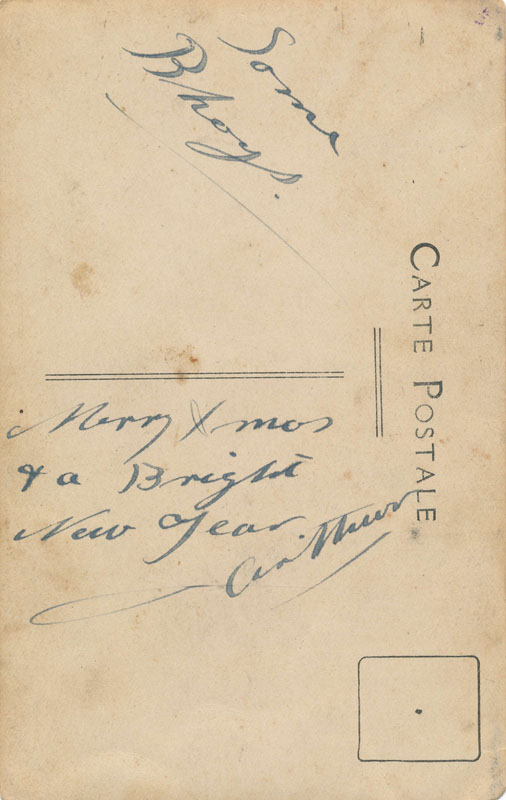 Some
Bhoys.
CARTE POSTALE
Merry Xmas
& a Bright
New Year
Arthur